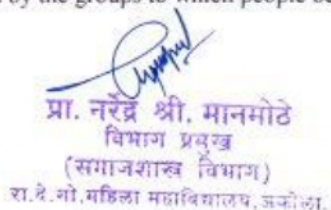 by the groups to which people be
प्रा. नरेंद्र श्री. मानमोठे
विभाग प्रमुख
(समाजशास्त्र विभाग)
रा.दे.गो.महिला महाविद्यालय,अकोला.